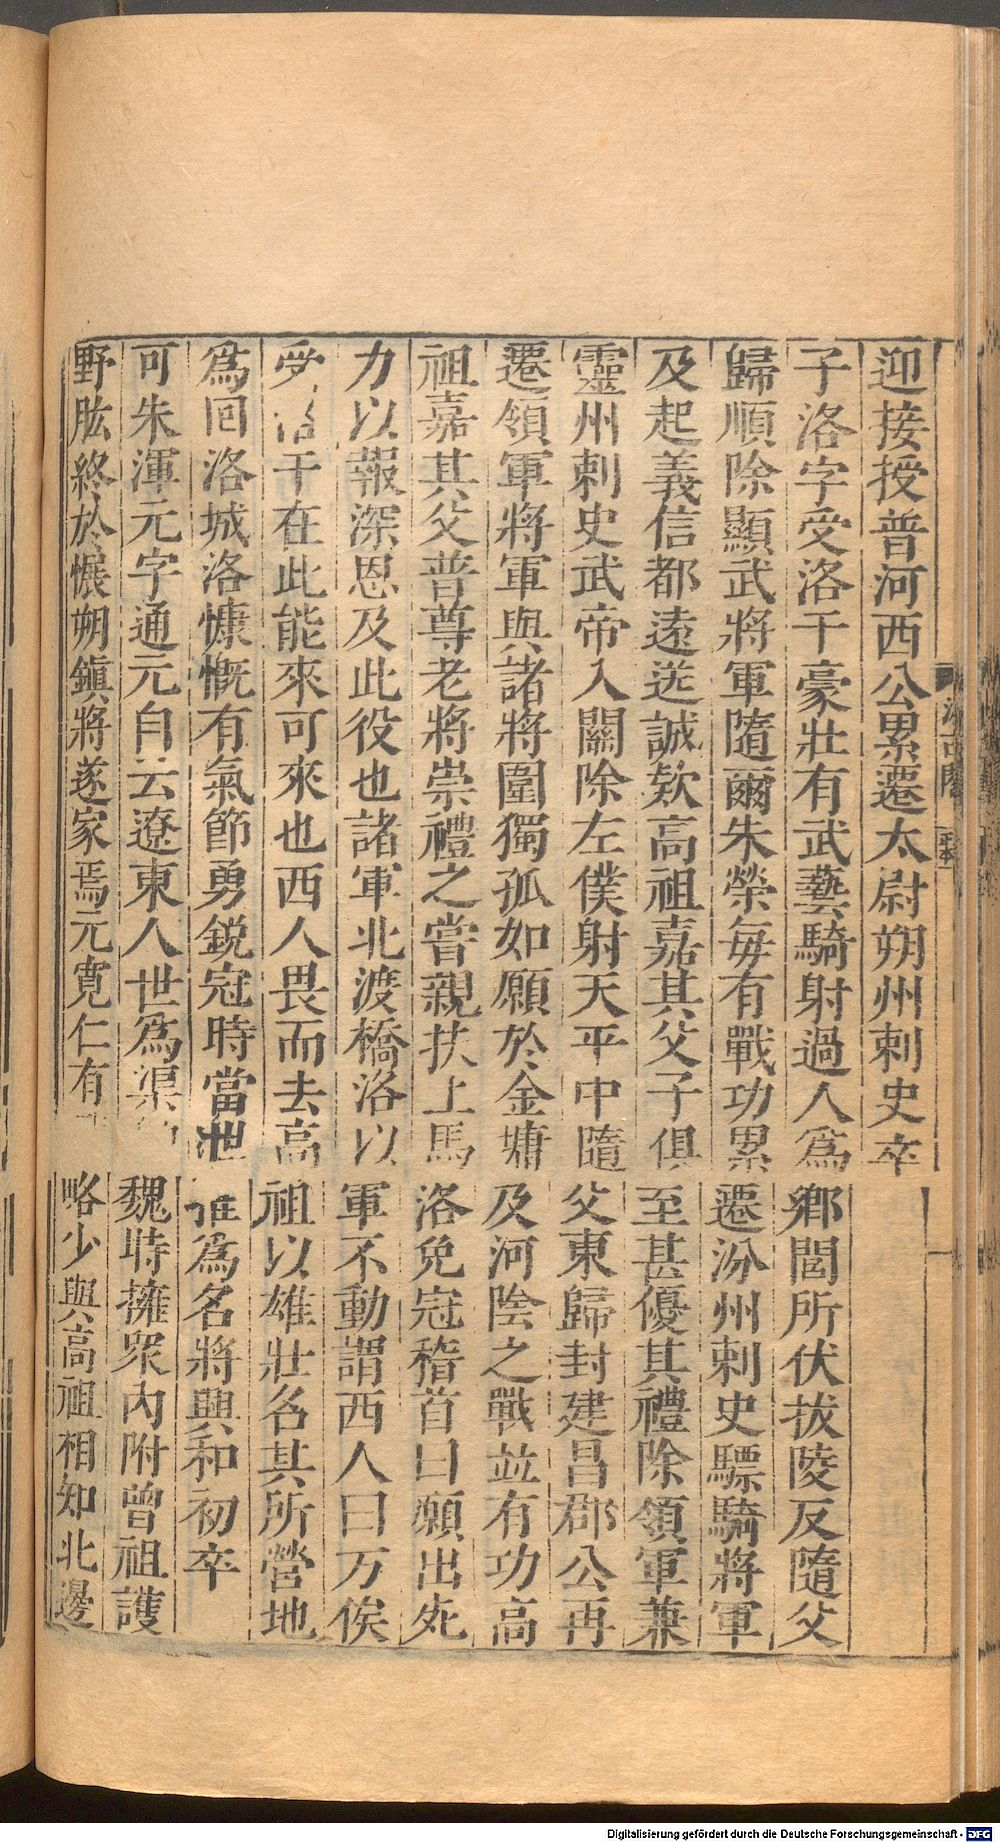 汲古閣
迎接授普河西公累遷太尉朔州刺史卒
子洛字受洛干豪壯有武藝騎射過人爲鄉閭所伏拔陵反隨父
歸順除顯武將軍隨爾朱榮每有戰功累遷汾州刺史驃騎將軍
及起義信都遠送誠欵高祖嘉其父子俱至甚優其禮除領軍兼
靈州刺史武帝入關除左僕射天平中隨父東歸封建昌郡公再
遷領軍將軍與諸將圍獨孤如願於金墉及河陰之戰並有功高
祖嘉其父普尊老將崇禮之嘗親扶上馬洛免冠稽首曰願出死
力以報深恩及此役也諸軍北渡橋洛以軍不動謂西人曰万俟
受洛干在此能來可來也西人畏而去高祖以雄壯名其所營地
爲回洛城洛慷慨有氣節勇鋭冠時當世推爲名將興和初卒
可朱渾元字通元自云遼東人世爲渠魏時擁衆內附曾祖護
野肱終於懷朔鎮將遂家焉元寬仁有略少與高祖相知北邊
Digitalisierung gefördert durch die Deutsche Forschungsgemeinschaft - DFG